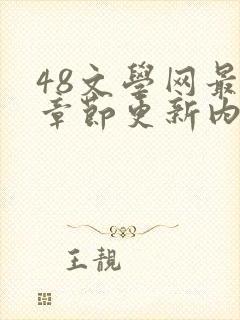 48文學网最
章節更新内
王靚